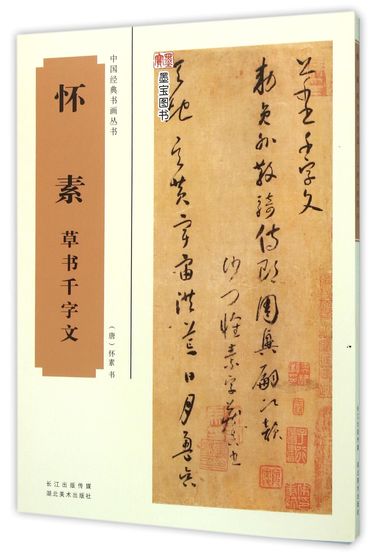 中国经典书画丛书
怀素
草书千字文
（唐）怀素 书
长江出版传媒
湖北美术出版社
墨宝图书
千字文
勅員外散騎侍郎周興嗣次韻
沙門懷素字藏真
天地玄黃宇宙洪荒日月盈昃